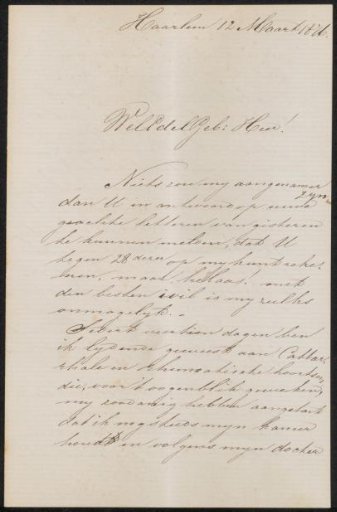 Haarlem 12 Maart 1871.
WelEdelGeb: Heer!
Niets zou my aangenamer zyn
dan U in antwoord op uwe
geachte letteren van gisteren
te kunnen melden, dat U
tegen 28 dezer op my kunt reke-
nen, maar helaas! met
den besten wil is my zulks
onmogelyk.
Sedert veertien dagen ben
ik lydende geweest aan Cathar-
rhale en rhumatische koortsen,
die, voor 't oogenblik geweken,
my zoodanig hebben aangetast
dat ik nog steeds mijn kamer
houdt en volgens mijn docter